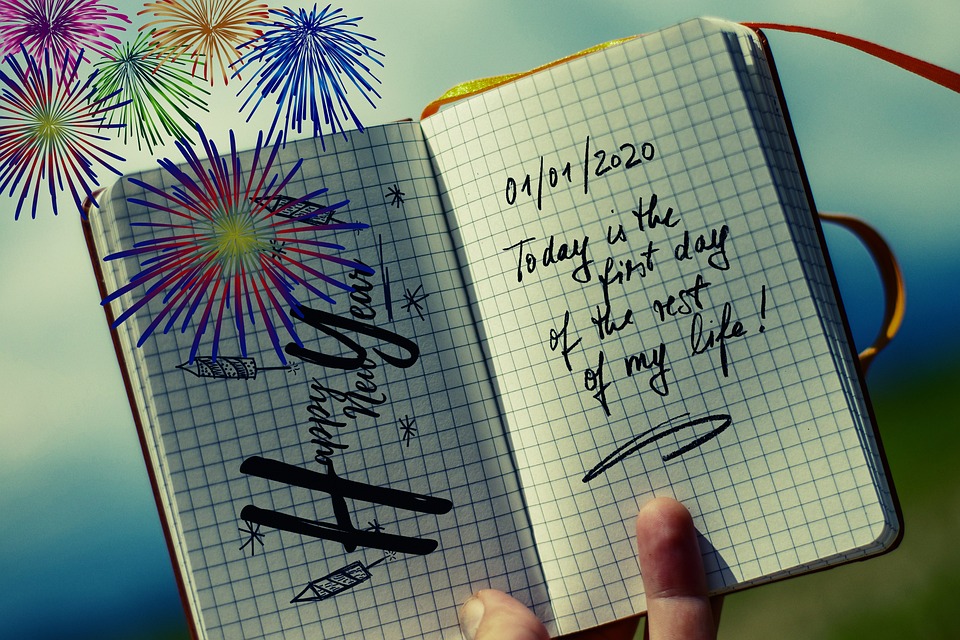 Happy
New Year
01/01/2020
Today is the
first day
of the rest
of my life!